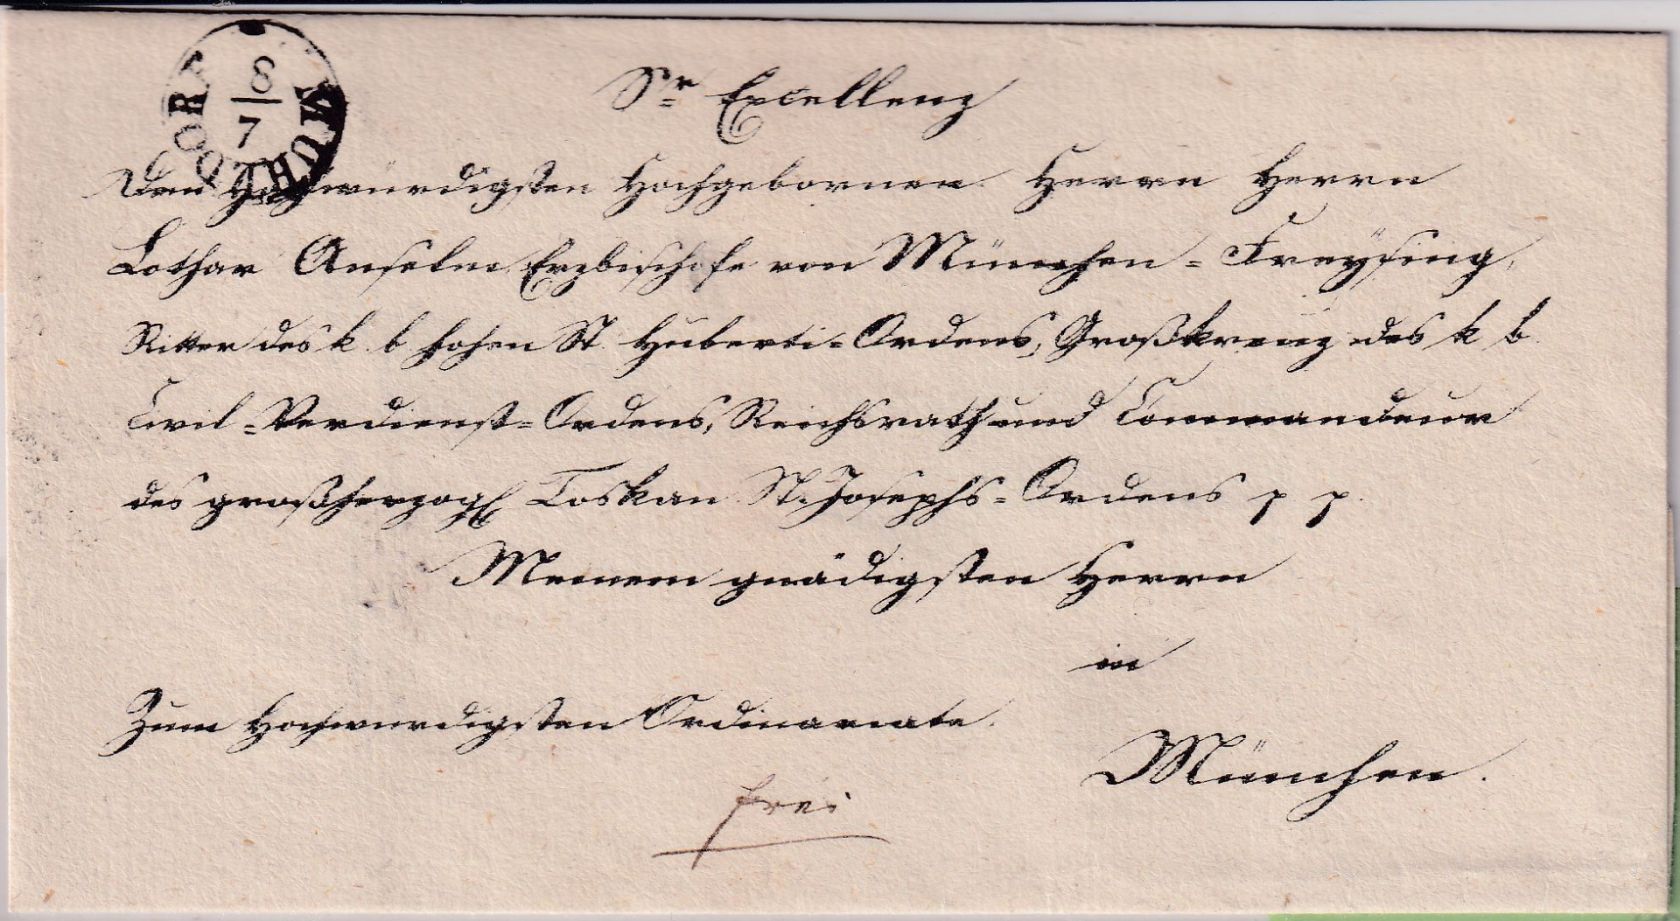 MÜHLDORF
8
7
Sr Excellenz
Dem Hochwürdigsten Hochgebornen Herrn Herrn
Lothar Anselm Erzbischofe von München=Freÿsing,
Ritter des k. b. hohen St. Huberti=Ordens, Großkreuz des k b
Civil=Verdienst=Ordens, Reichsrath und Commandeur
des großherzogl Toskan St. Josephs=Ordens p p.
Meinem gnädigsten Herrn
in
Zum Hochwürdigsten Ordinariate.
München.
frei